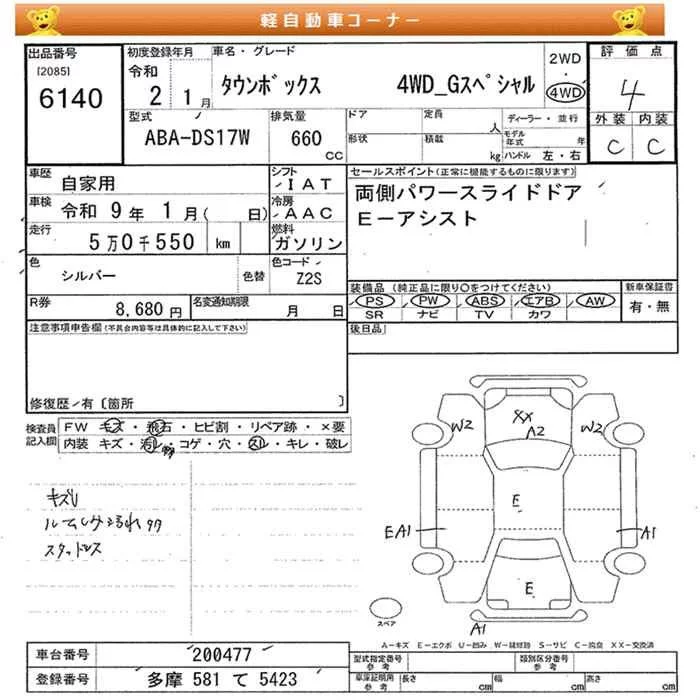 軽自動車コーナー
出品番号
[2085]
6140
初度登録年月
令和
2 1月
車名・グレード
タウンボックス 4WD_Gスペシャル
2WD
・
4WD
評価点
4
外装 内装
C C
型式
ABA-DS17W
排気量
660
CC
ドア
形状
定員
人
積載
kg
ディーラー・並行
モデル年式 年
ハンドル 左・右
車歴
自家用
車検
令和 9年 1月( 日)
走行
5万0千550 km
シフト
IAT
冷房
AAC
燃料
ガソリン
色
シルバー
色替
色コード
Z2S
R券
8,680円
名変通知期限
月 日
セールスポイント(正常に機能するものに限ります)
両側パワースライドドア
E-アシスト
装備品(純正品に限り○をつけてください)
PS PW ABS エアB AW
SR ナビ TV カワ
新車保証書
有・無
後日品
注意事項申告欄(不具合内容等は具体的に記入して下さい)
修復歴/有〔箇所 〕
検査員記入欄
FW キズ・飛石・ヒビ割・リペア跡・×要
内装 キズ・汚レ・コゲ・穴・スレ・キレ・破レ
スタッドレス
XX
A2
W2
W2
E
EA1
A1
E
A1
スペア
A-キズ E-エクボ U-凹み W-補修跡 S-サビ C-腐食 XX-交換済
車台番号
200477
登録番号
多摩 581 て 5423
型式指定番号
参考
類別区分番号
参考
車庫証明用
参考
長さ cm
幅 cm
高さ cm